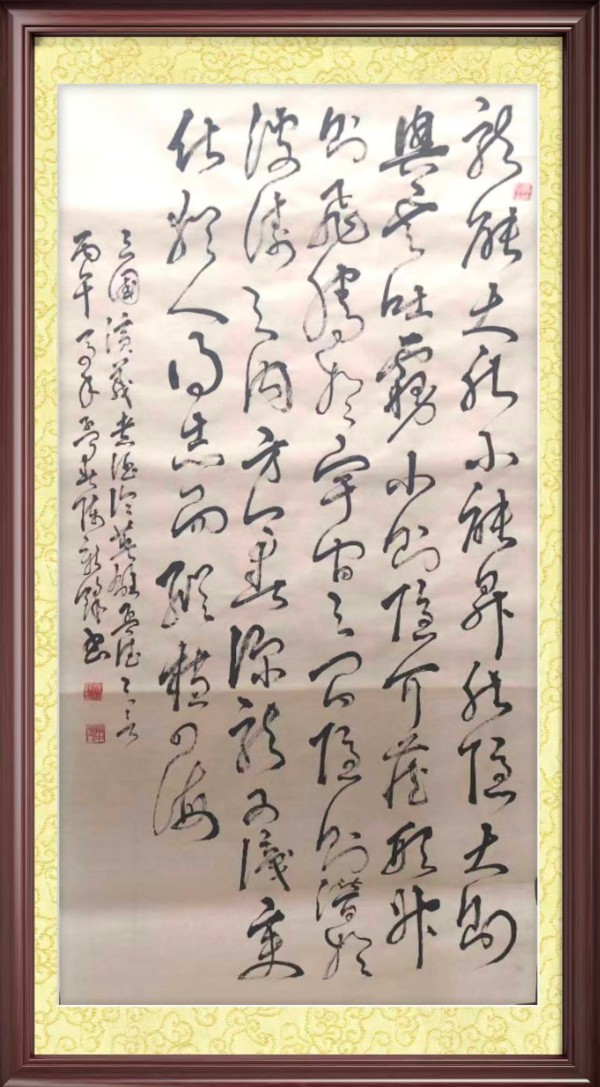 龍能大能小能昇能隱大則
興雲吐霧小則隱介藏形昇
則飛騰於宇宙之間隱則潛於
波濤之內方今春深龍變
化猶人得志而縱橫四海
三國演義煮酒論英雄孟德之言
丙午馬年孟春陳新書